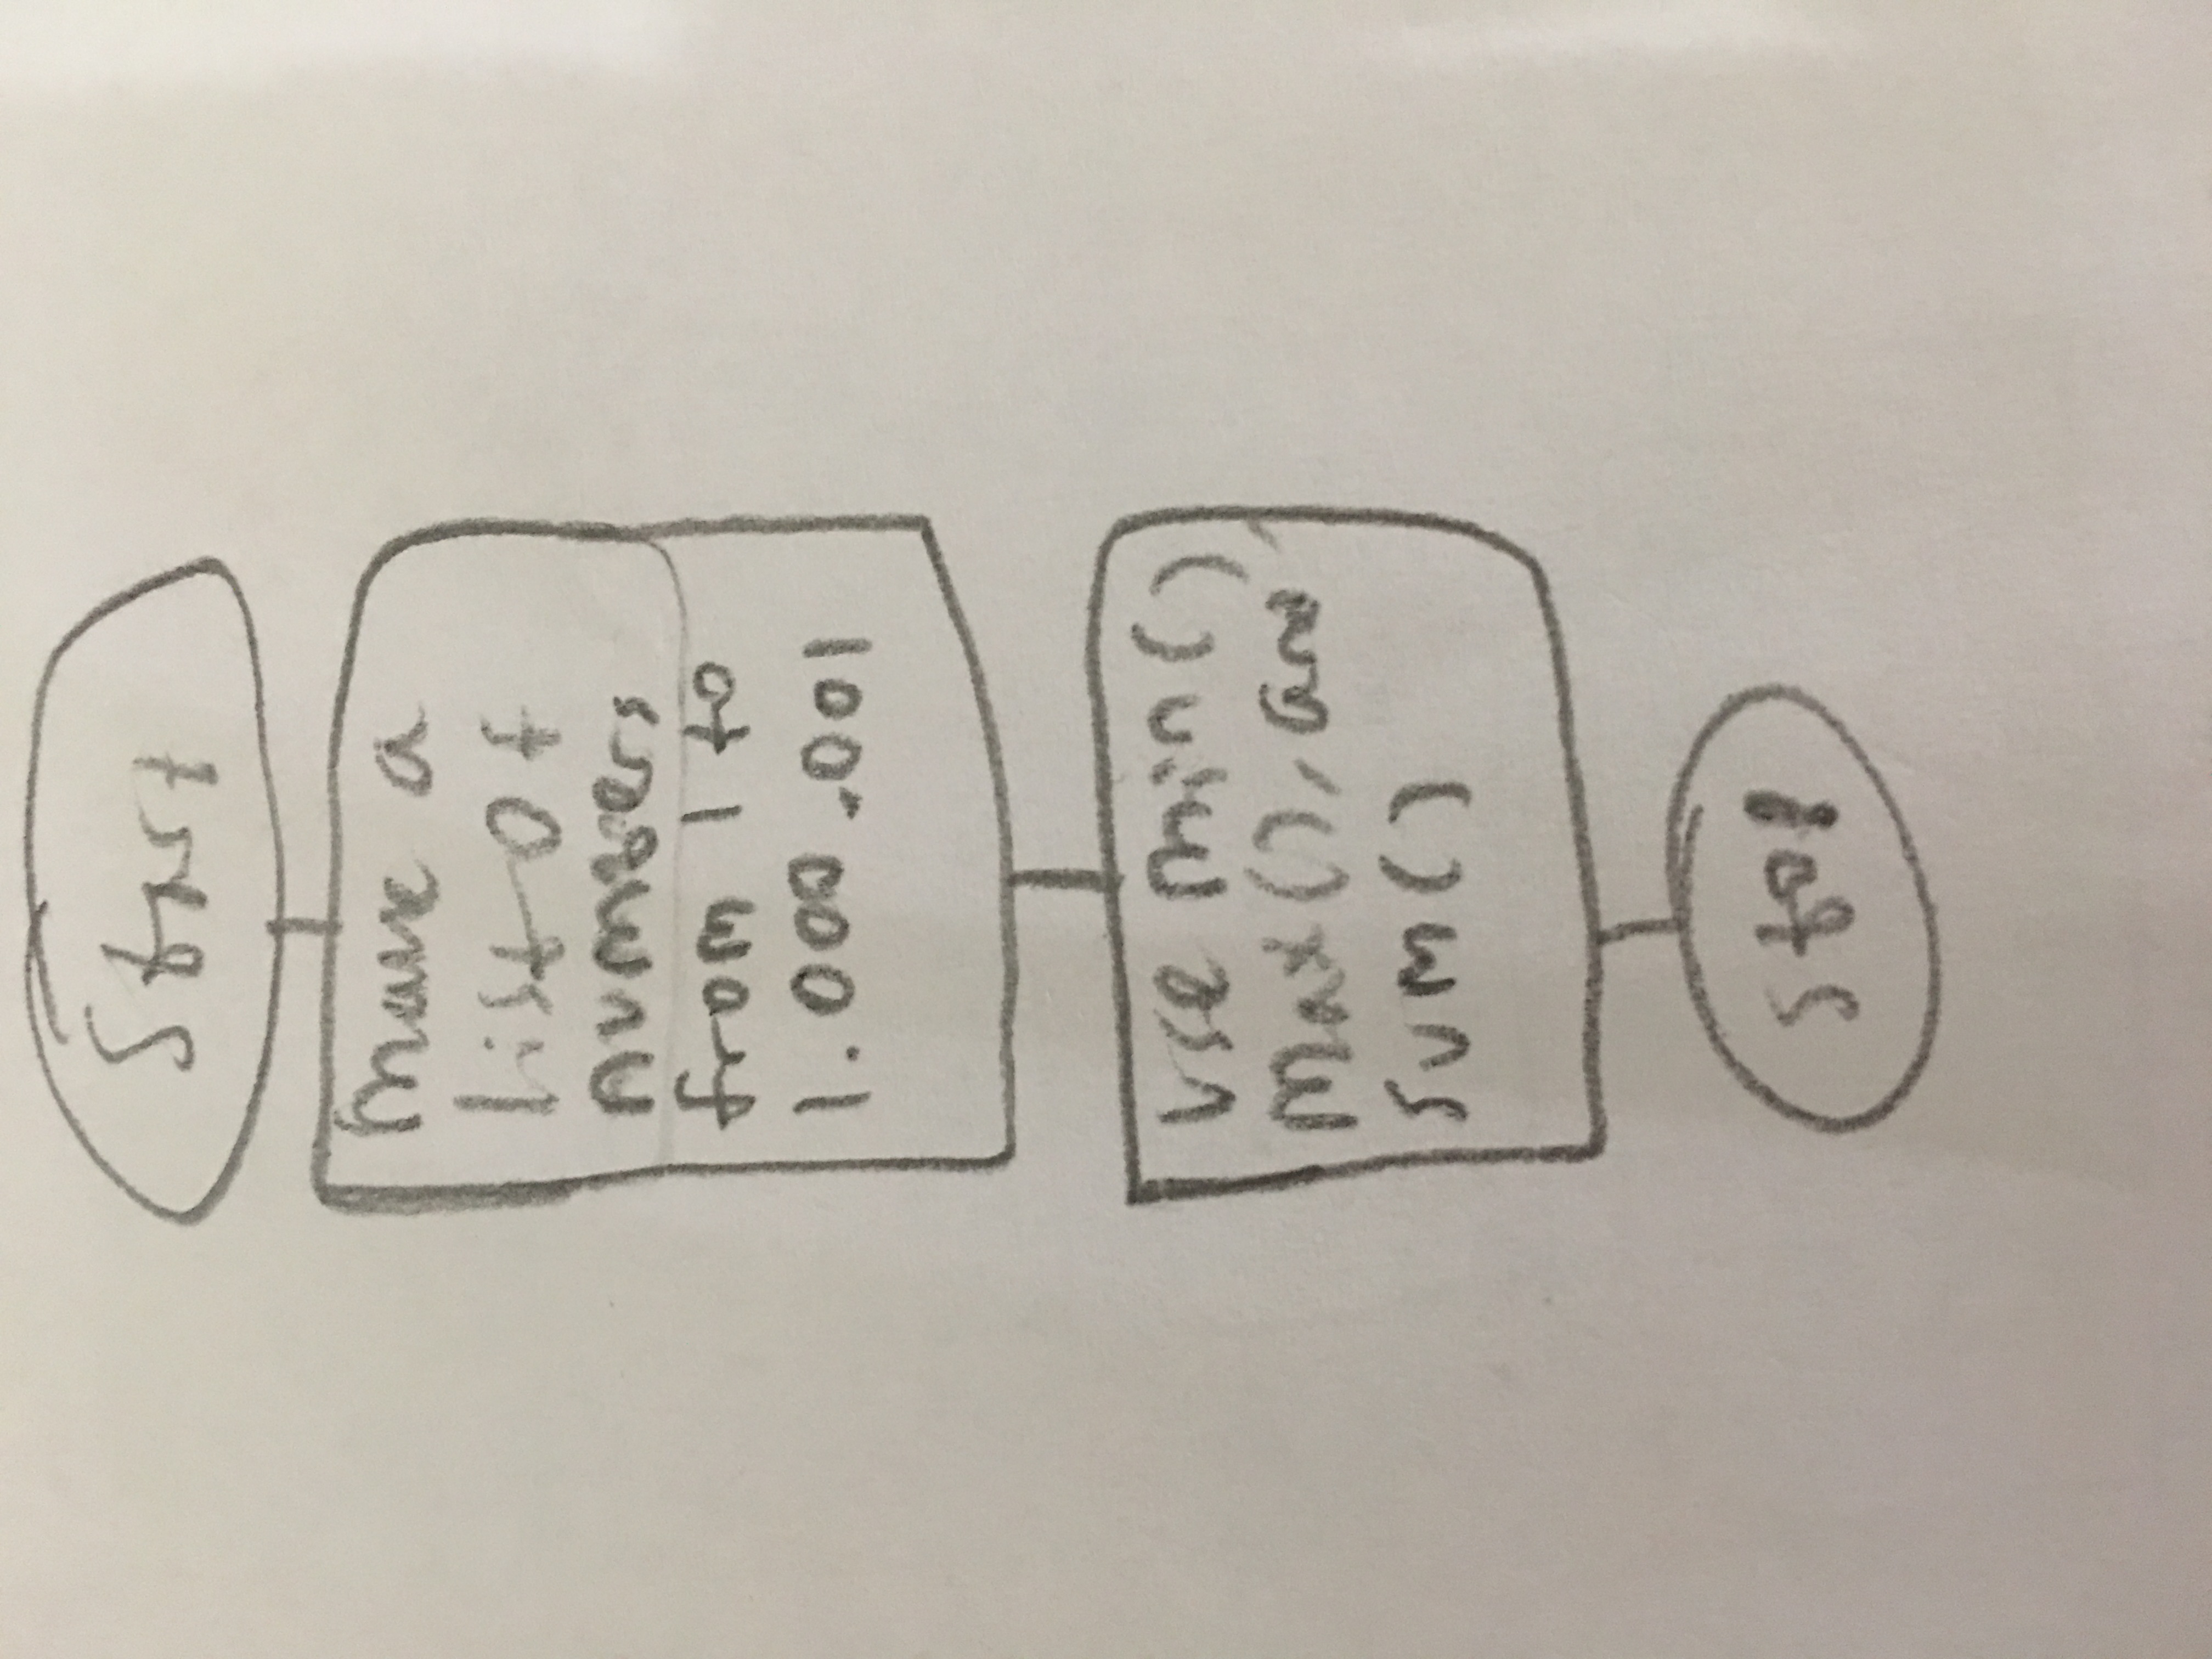 Start
Make a
list of
numbers
from 1 to
1.000.001
use min(),
max(), and
sum()
Stop